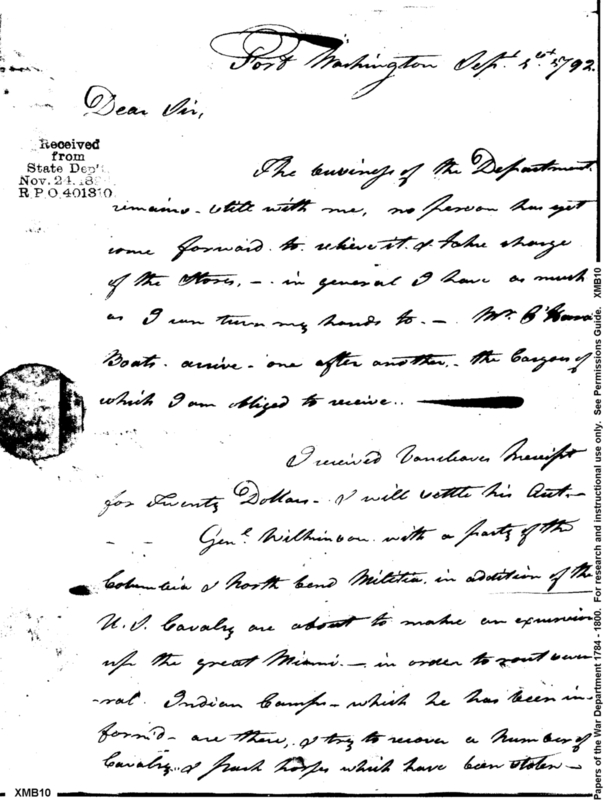 Fort Washington Sept. 1st. 1792.
Dear Sir,
Received
from
State Dep't.
Nov. 24.
R P O 401810.
The business of the Department
remains still with me, no person has yet
come forward to relieve it & take charge
of the Stores, - in general I have as much
as I can turn my hands to. - Mr. O'Haras
Boats arrive one after another, - the Cargoes of
which I am obliged to receive. -
I received Vancleaves Receipt
for Twenty Dollars - & will settle his Acct. -
Genl. Wilkinson with a party of the
Columbia & North bend Militia in addition of the
U. S. Cavalry are about to make an excursion
up the great Miami - in order to rout seve
-ral Indian Camps - which he has been in-
form'd - are there, & try to recover a number of
Cavalry & pack horses which have been stolen -
XMB10
Papers of the War Department 1784 - 1800. For research and instructional use only. See Permissions Guide. XMB10